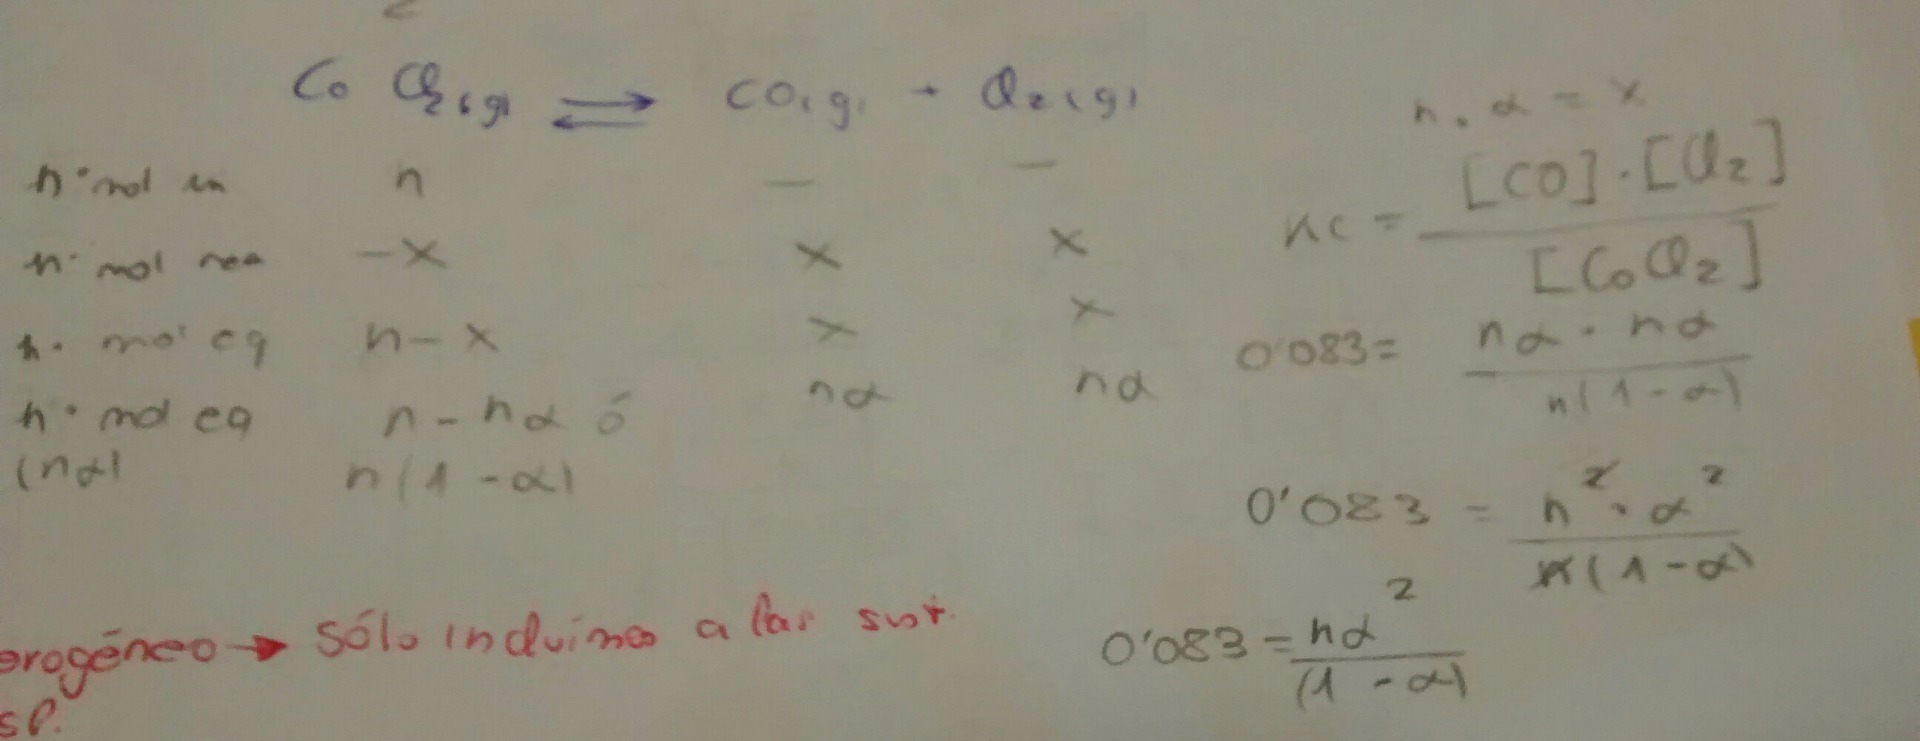 Co Cl₂(g) ⇌ CO(g) + Cl₂(g)
n° mol in n — —
n° mol rea -x x x
n° mol eq n-x x x
n° mol eq n - nα ó nα nα
(nα) n(1-α)
n · α = x
Kc = [CO]·[Cl₂] / [CoCl₂]
0'083 = nα · nα / n(1-α)
0'083 = n² · α² / n(1-α)
0'083 = nα² / (1-α)
erogéneo → sólo incluímos a las sust.